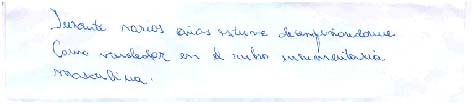 Durante varios años estuve desempeñandome
Como vendedor en el rubro indumentaria
masculina.